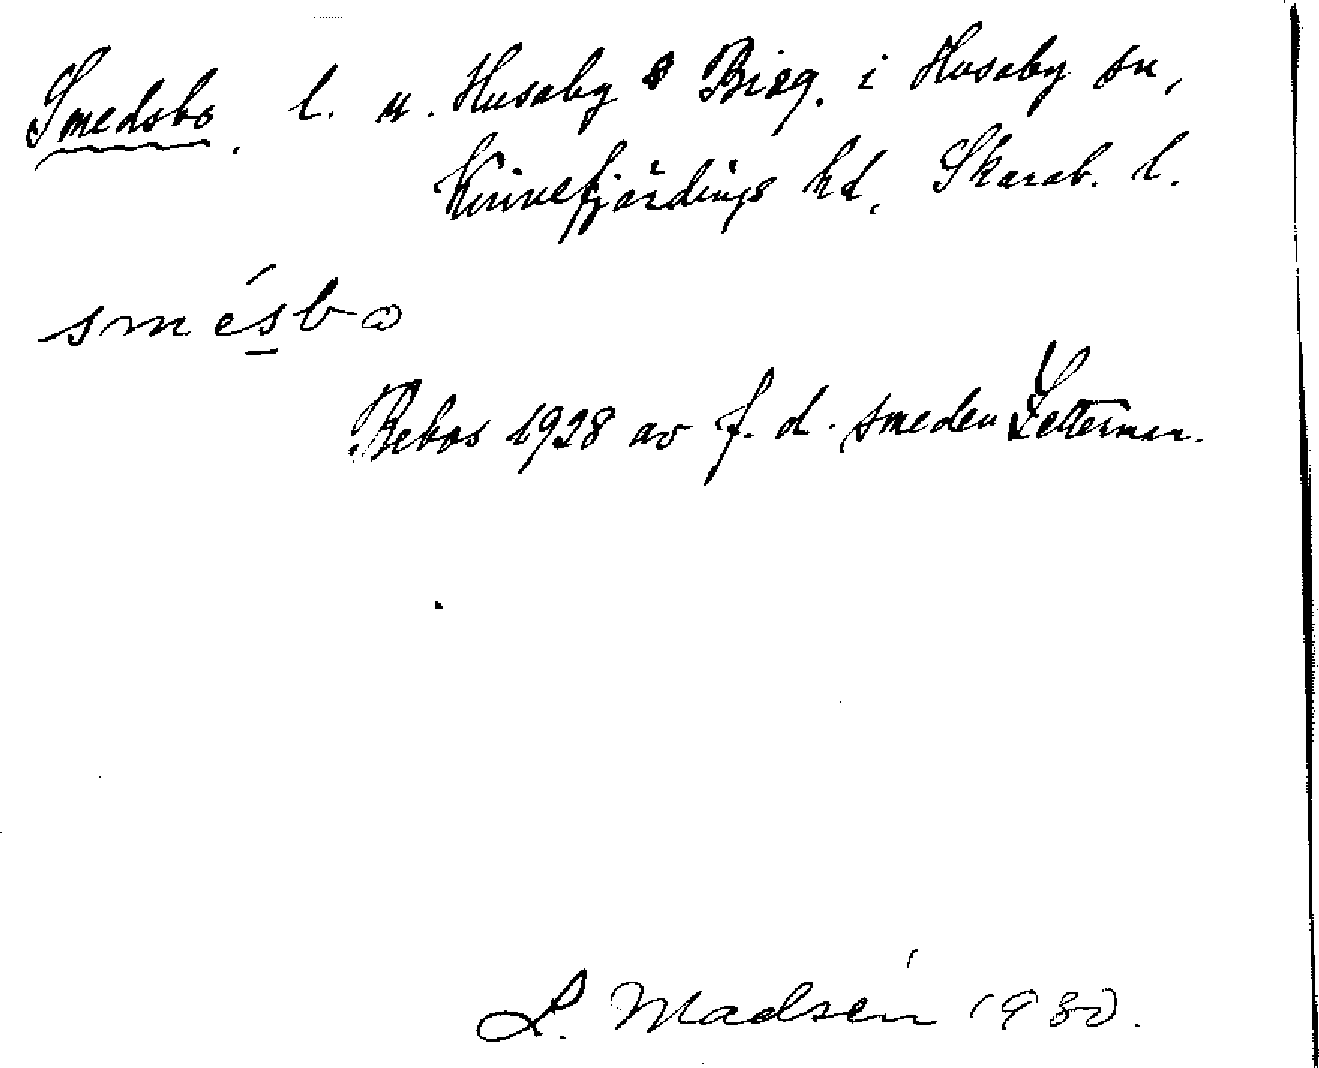 Smedsbo, l. u. Husaby Biskg. i Husaby sn,
Kinnefjärdings hd, Skarab. l.
smésbo
Bebos 1928 av f. d. smeden Zetterman.
L. Madsén 1930.